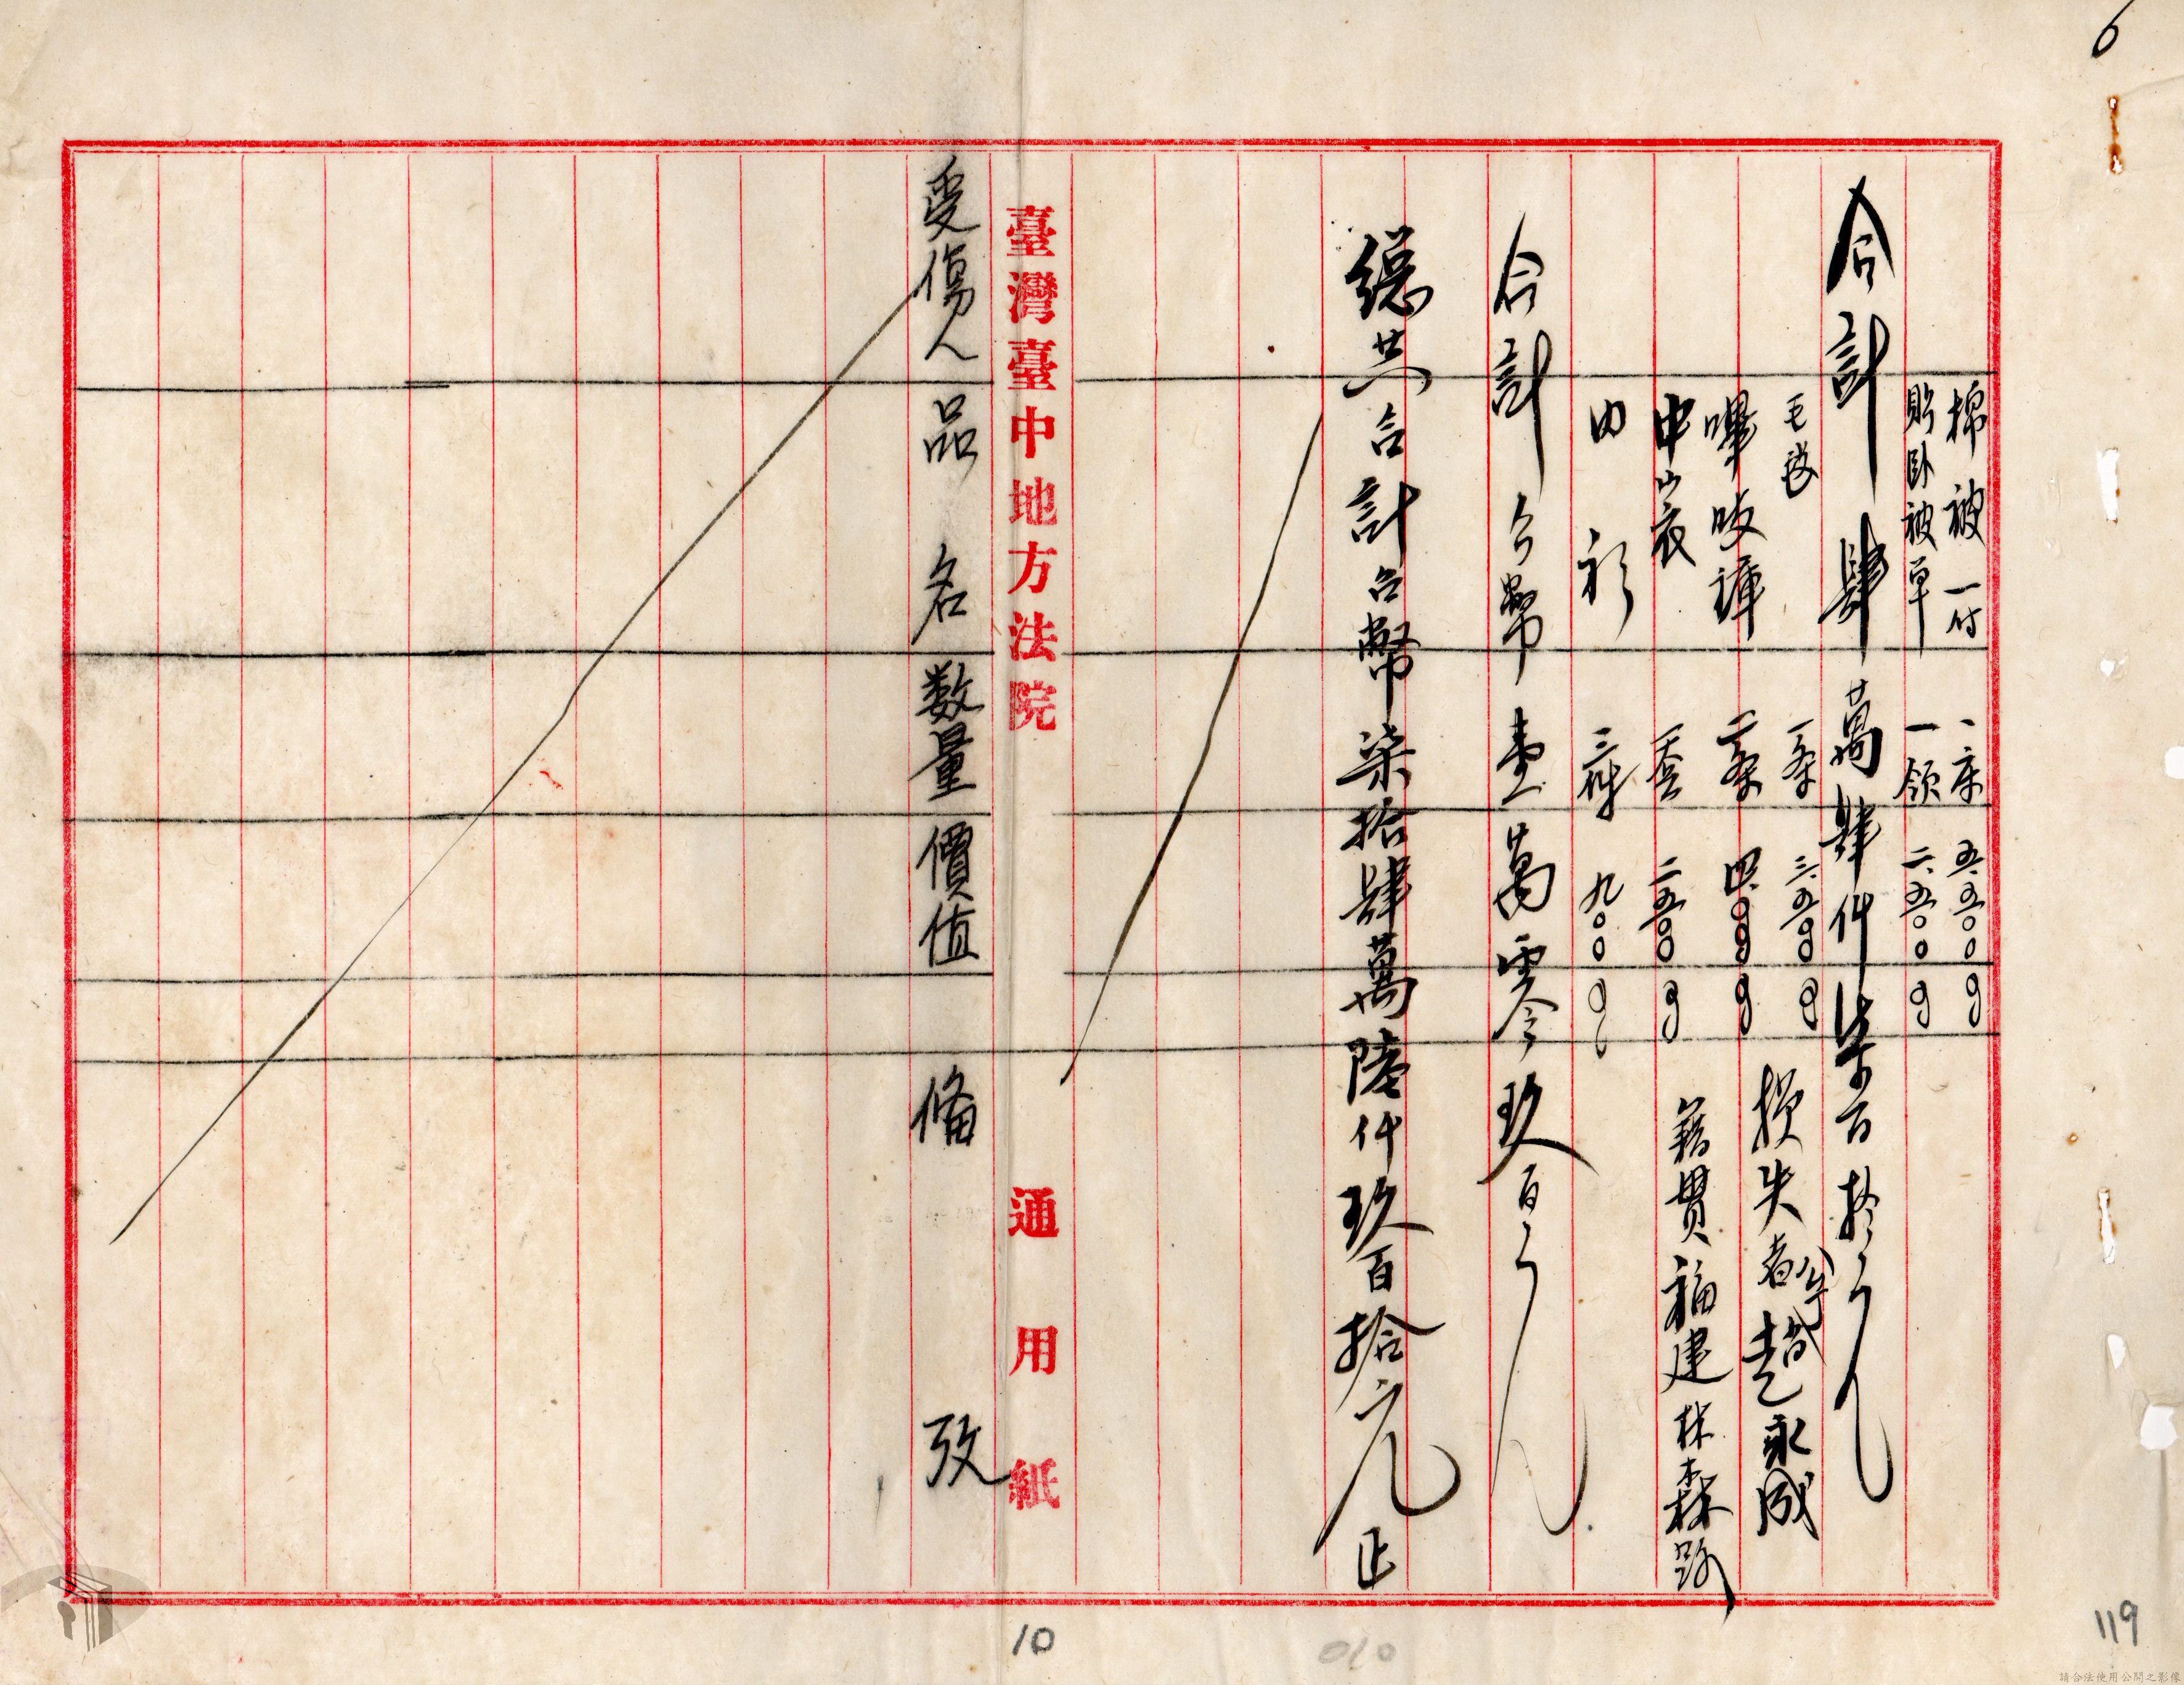 6
棉被一付 一床 五.五〇〇〇〇
貼臥被單 一領 二.五〇〇〇〇
合計肆萬肆仟柒百拾元
毛毯 一条 三.五〇〇〇〇 損失者 公丁 趙永成
嗶吱褲 二条 四.〇〇〇〇〇 籍貫福建林森縣
中山裝 一套 二五〇〇〇〇
內衫 三件 九〇〇〇〇
合計台幣壹萬零玖百元
總共合計台幣柒拾肆萬陸仟玖百拾元正
臺灣臺中地方法院 通用紙
受傷人 品名 数量 價值 備攷
10
010
119
請合法使用公開之影像